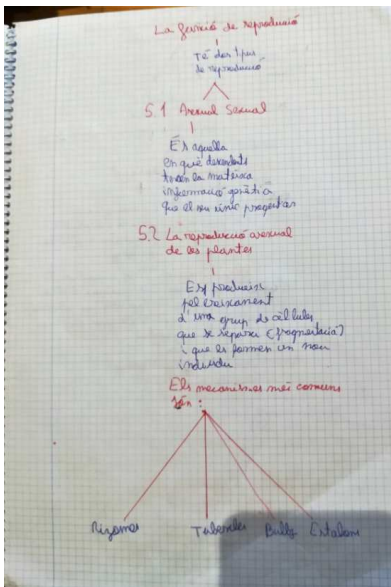 La funció de reproducció
Té dos tipus
de reproducció
5.1 Asexual Sexual
És aquella
en què descendents
tenen la mateixa
informació genètica
que el seu únic progenitor
5.2 La reproducció asexual
de les plantes
Es produeix
pel creixement
d'una grup de cèl·lules
que se separa (fragmentació)
i que es formen un nou
individu
Els mecanismes més comuns
són:
Rizomes Tubercles Bulbs Estolons